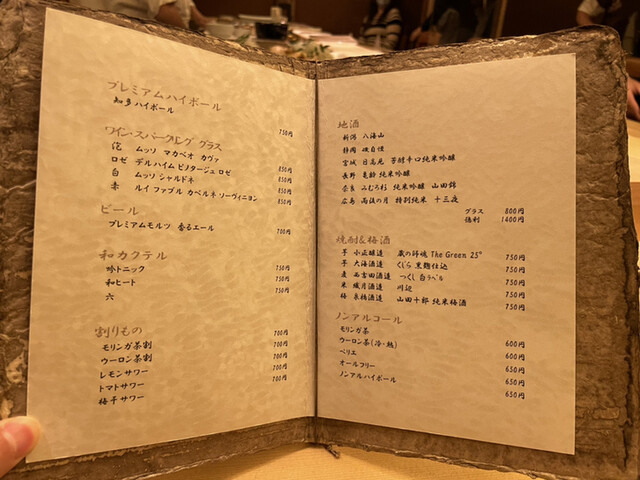 プレミアムハイボール
知多ハイボール 750円
ワイン・スパークリング グラス
泡 ムッソ マカベオ カヴァ 850円
ロゼ デルハイム ピノタージュ ロゼ 850円
白 ムッソ シャルドネ 850円
赤 ルイ ファブル カベルネ ソーヴィニヨン 850円
ビール
プレミアムモルツ 香るエール 700円
和カクテル
吟トニック 750円
和ヒート 750円
六 750円
割りもの
モリンガ茶割 700円
ウーロン茶割 700円
レモンサワー 700円
トマトサワー 700円
梅干サワー 700円
地酒
新潟 八海山
静岡 磯自慢
宮城 日高見 芳醇辛口純米吟醸
長野 亀齢 純米吟醸
奈良 みむろ杉 純米吟醸 山田錦
広島 雨後の月 特別純米 十三夜
グラス 800円
徳利 1400円
焼酎&梅酒
芋 小正醸造 蔵の師魂 The Green 25° 750円
芋 大海酒造 くじら 黒麹仕込 750円
麦 西吉田酒造 つくし 白ラベル 750円
米 繊月酒造 川辺 750円
梅 長梅酒造 山田十郎 純米梅酒 750円
ノンアルコール
モリンガ茶 600円
ウーロン茶(冷・熱) 600円
ペリエ 650円
オールフリー 650円
ノンアルハイボール 650円